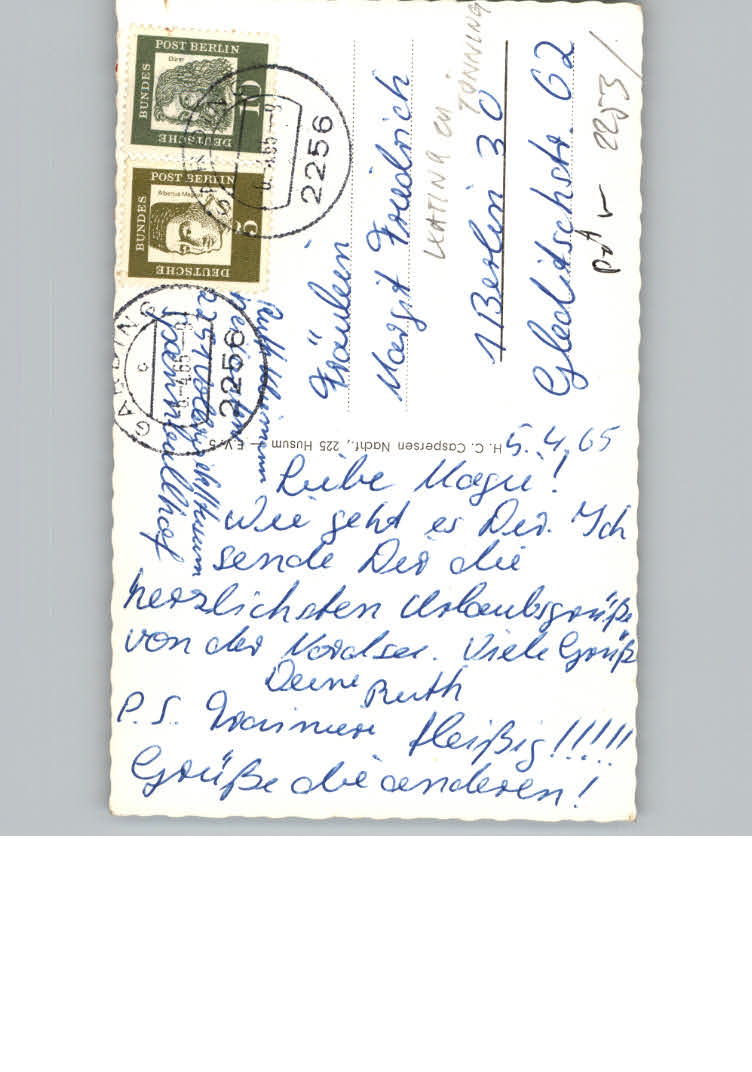 5.4.65
Liebe Magu!
Wie geht es Dir. Ich
sende Dir die
herzlichsten Urlaubsgrüße
von der Nordsee. Viele Grüße
Deine Ruth
P.S. Trainiere fleißig!!!!!
Grüße die anderen!
Fräulein
Margit Friedrich
1 Berlin 30
Gleditschstr. 62
Ruth
2251
H. C. Caspersen Nachf., 225 Husum
DEUTSCHE BUNDESPOST BERLIN
Dürer
10
DEUTSCHE BUNDESPOST BERLIN
Albertus Magnus
5
GARDING
2256
GARDING
2256
KATING
TÖNNING
2253